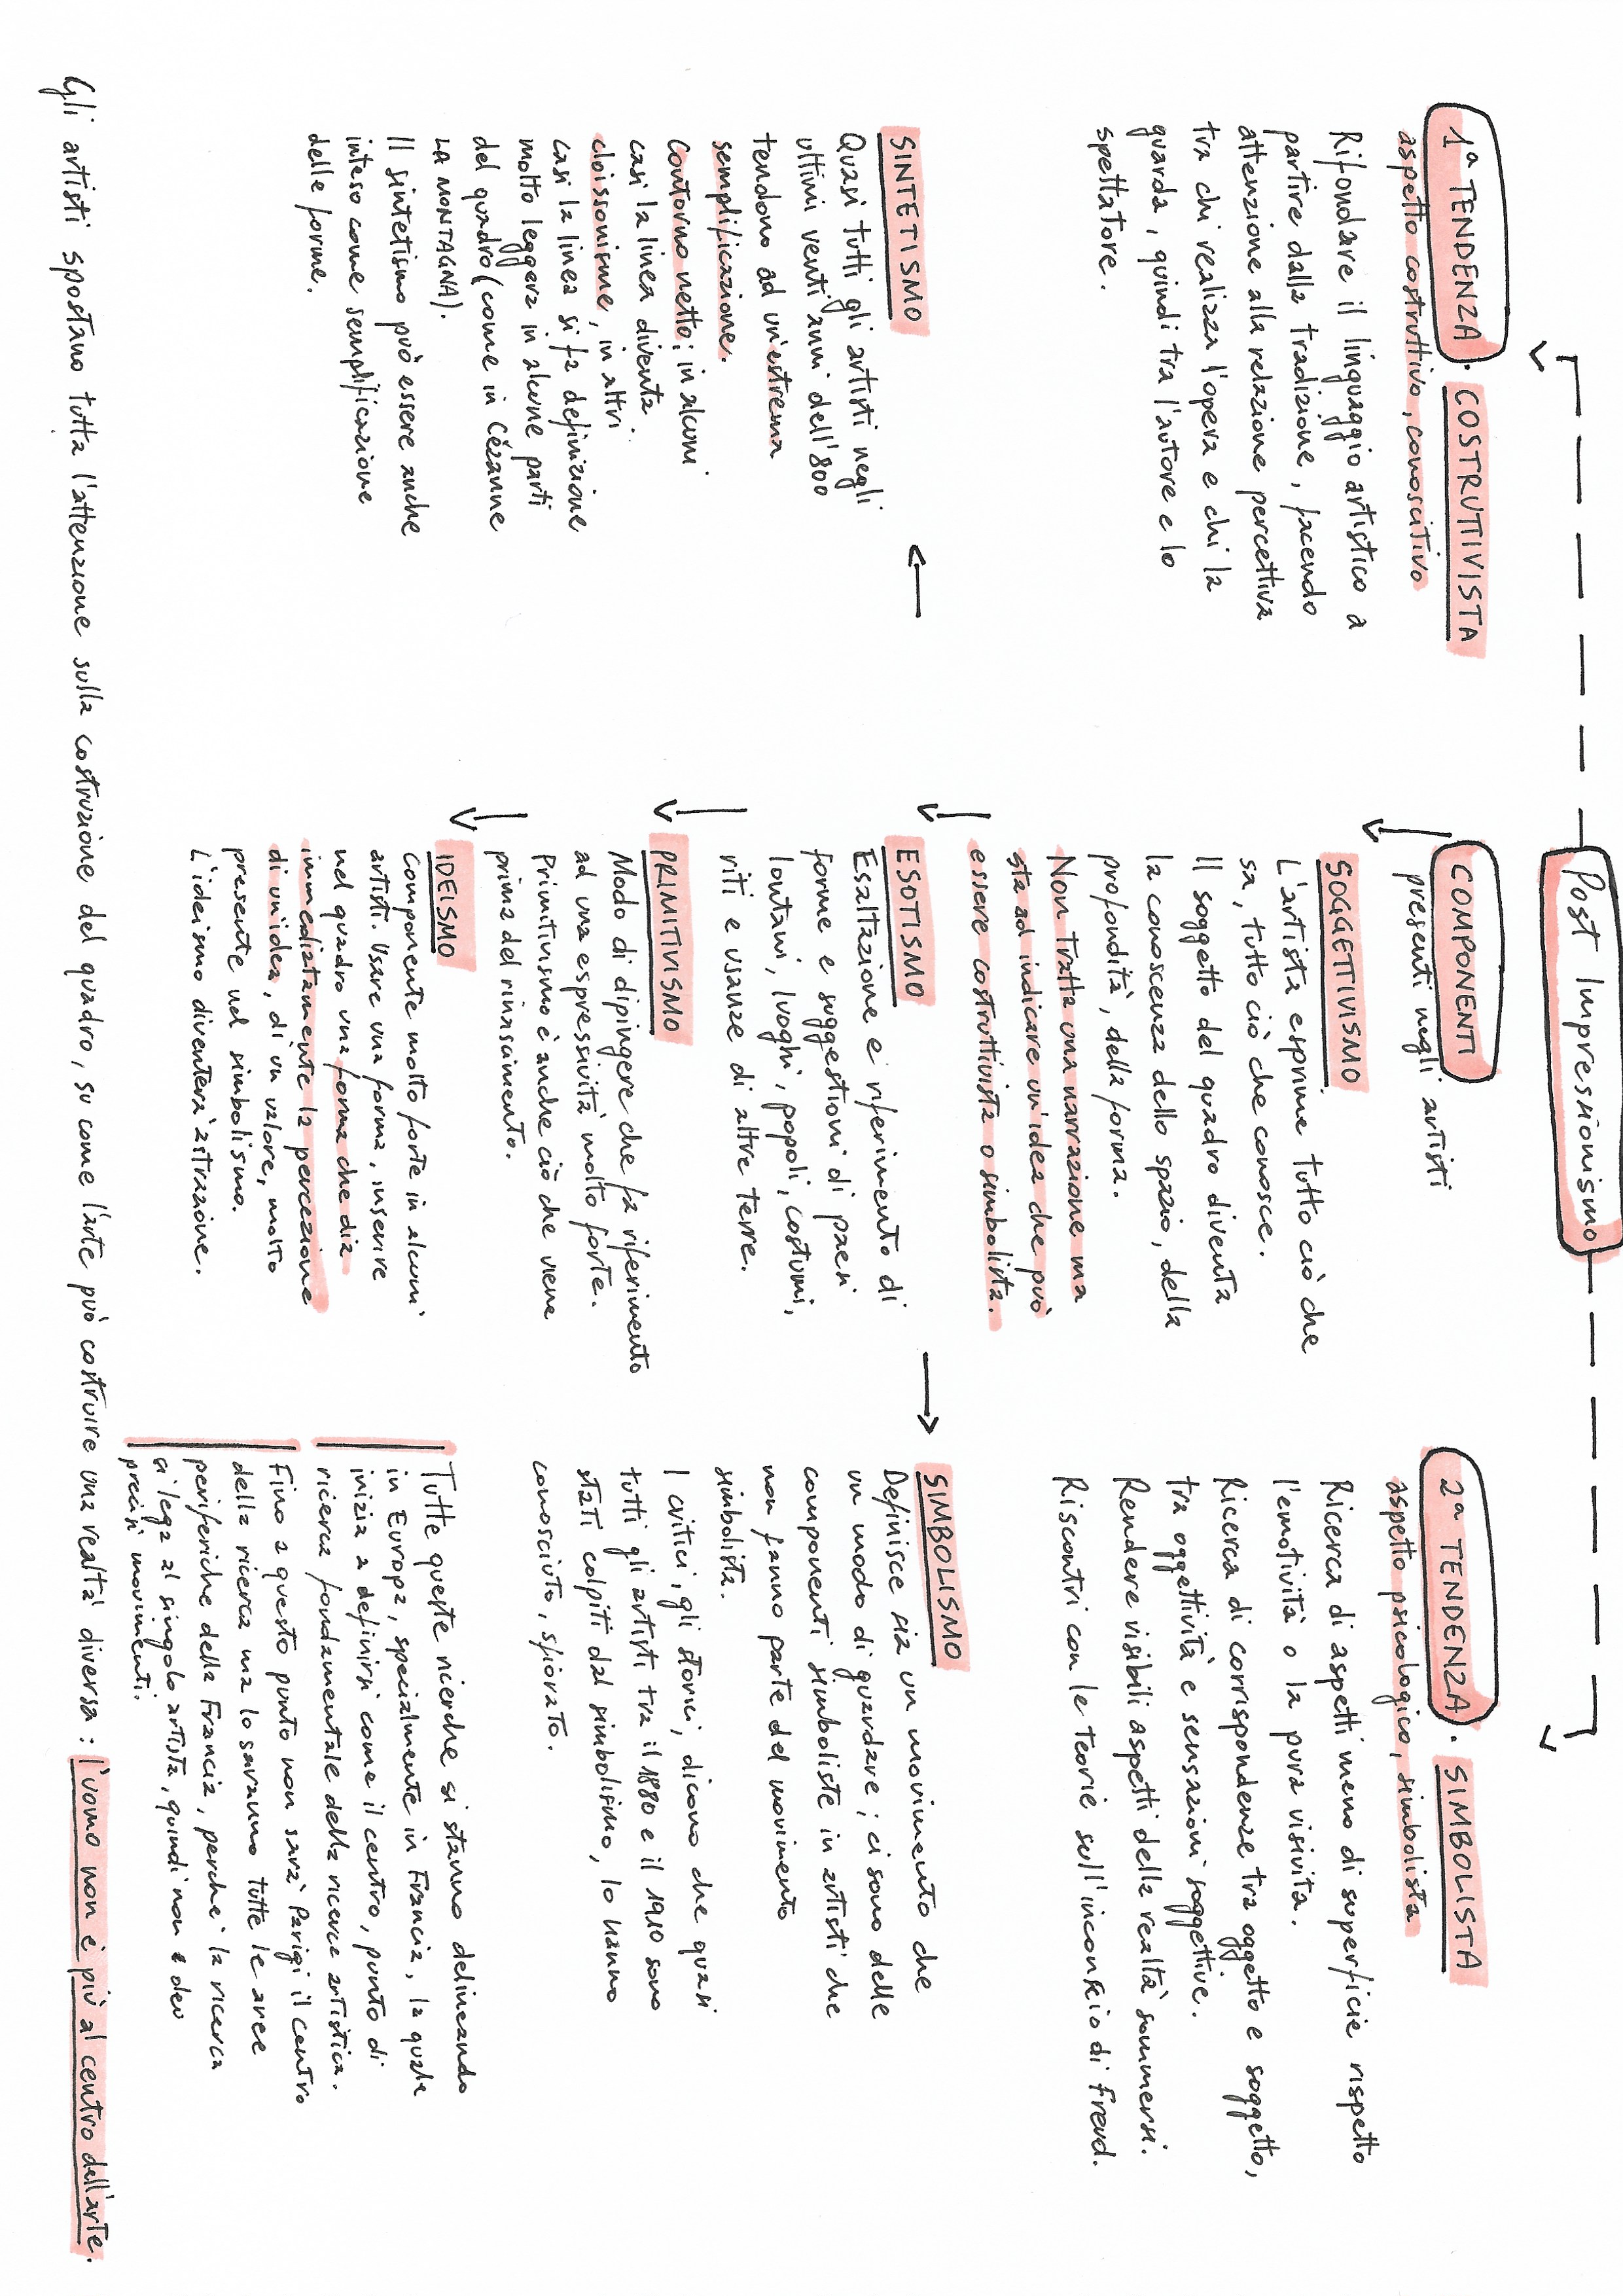 Post Impressionismo
1ª TENDENZA · COSTRUTTIVISTA
aspetto costruttivo, conoscitivo
Rifondare il linguaggio artistico a
partire dalla tradizione, facendo
attenzione alla relazione percettiva
tra chi realizza l'opera e chi la
guarda, quindi tra l'autore e lo
spettatore.
SINTETISMO
Quasi tutti gli artisti negli
ultimi venti anni dell'800
tendono ad un'estrema
semplificazione.
Contorno netto; in alcuni
casi la linea diventa
cloissonisme, in altri
casi la linea si fa definizione
molto leggera in alcune parti
del quadro (come in Cézanne
LA MONTAGNA).
Il sintetismo può essere anche
inteso come semplificazione
delle forme.
COMPONENTI
presenti negli artisti
SOGGETTIVISMO
L'artista esprime tutto ciò che
sa, tutto ciò che conosce.
Il soggetto del quadro diventa
la conoscenza dello spazio, della
profondità, della forma.
Non tratta una narrazione ma
sta ad indicare un'idea che può
essere costruttivista o simbolista.
ESOTISMO
Esaltazione e riferimento di
forme e suggestioni di paesi
lontani, luoghi, popoli, costumi,
riti e usanze di altre terre.
PRIMITIVISMO
Modo di dipingere che fa riferimento
ad una espressività molto forte.
Primitivismo è anche ciò che viene
prima del rinascimento.
IDEISMO
Componente molto forte in alcuni
artisti. Usare una forma, inserire
nel quadro una forma che dia
immediatamente la percezione
di un'idea, di un valore, molto
presente nel simbolismo.
L'ideismo diventerà astrazione.
2ª TENDENZA · SIMBOLISTA
aspetto psicologico, simbolista
Ricerca di aspetti meno di superficie rispetto
l'emotività o la pura visività.
Ricerca di corrispondenze tra oggetto e soggetto,
tra oggettività e sensazioni soggettive.
Rendere visibili aspetti della realtà sommersi.
Riscontri con le teorie sull'inconscio di Freud.
SIMBOLISMO
Definisce sia un movimento che
un modo di guardare; ci sono delle
componenti simboliste in artisti che
non fanno parte del movimento
simbolista.
I critici, gli storici, dicono che quasi
tutti gli artisti tra il 1880 e il 1910 sono
stati colpiti dal simbolismo, lo hanno
conosciuto, sfiorato.
Tutte queste ricerche si stanno delineando
in Europa, specialmente in Francia, la quale
inizia a definirsi come il centro, punto di
ricerca fondamentale della ricerca artistica.
Fino a questo punto non sarà Parigi il centro
della ricerca ma lo saranno tutte le aree
periferiche della Francia, perché la ricerca
si lega al singolo artista, quindi non a dei
precisi movimenti.
Gli artisti spostano tutta l'attenzione sulla costruzione del quadro, su come l'arte può costruire una realtà diversa : l'uomo non è più al centro dell'arte.